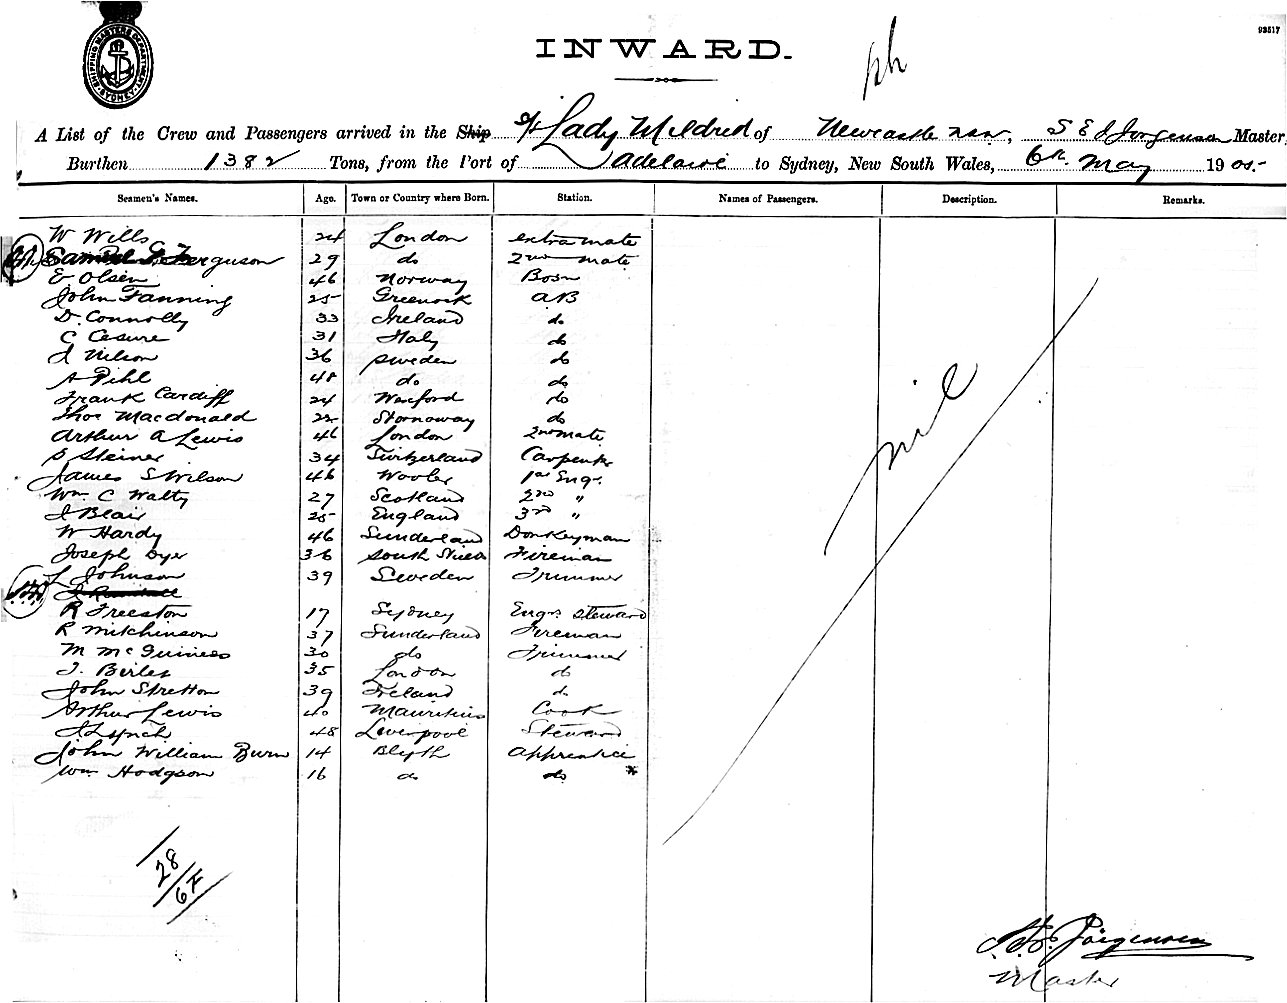 SHIPPING MASTERS DEPARTMENT SYDNEY
93517
INWARD.
A List of the Crew and Passengers arrived in the Ship S/s Lady Mildred of Newcastle NSW, S E J Jorgensen Master,
Burthen 1382 Tons, from the Port of Adelaide to Sydney, New South Wales, 6th May 1905
Seamen's Names. Age. Town or Country where Born. Station. Names of Passengers. Description. Remarks.
W Wills 24 London extra mate
Samuel G. Ferguson 29 do 2nd mate
E Olsen 46 Norway Bosn
John Fanning 25 Greenock AB
D. Connolly 33 Ireland do
C Cesure 31 Italy do
J Nilson 36 Sweden do
A Pihl 48 do do
Frank Cardiff 24 Wexford do
Thos Macdonald 22 Stornoway do
Arthur A Lewis 46 London 2nd mate
S Steiner 34 Switzerland Carpenter
James S Wilson 46 Wooler 1st Engr.
Wm C Walty 27 Scotland 2nd "
J Blair 25 England 3rd "
W Hardy 46 Sunderland Donkeyman
Joseph Dyer 36 South Shields Fireman
L Johnson 39 Sweden Trimmer
R Freeston 17 Sydney Engrs Steward
R Mitchinson 37 Sunderland Fireman
M McGuiness 30 do Trimmer
J. Birles 35 London do
John Stretton 39 Ireland do
Arthur Lewis 40 Mauritius Cook
J Lynch 48 Liverpool Steward
John William Burn 14 Blyth Apprentice
Wm Hodgson 16 do do *
nil
28
6 F
Jörgensen
Master